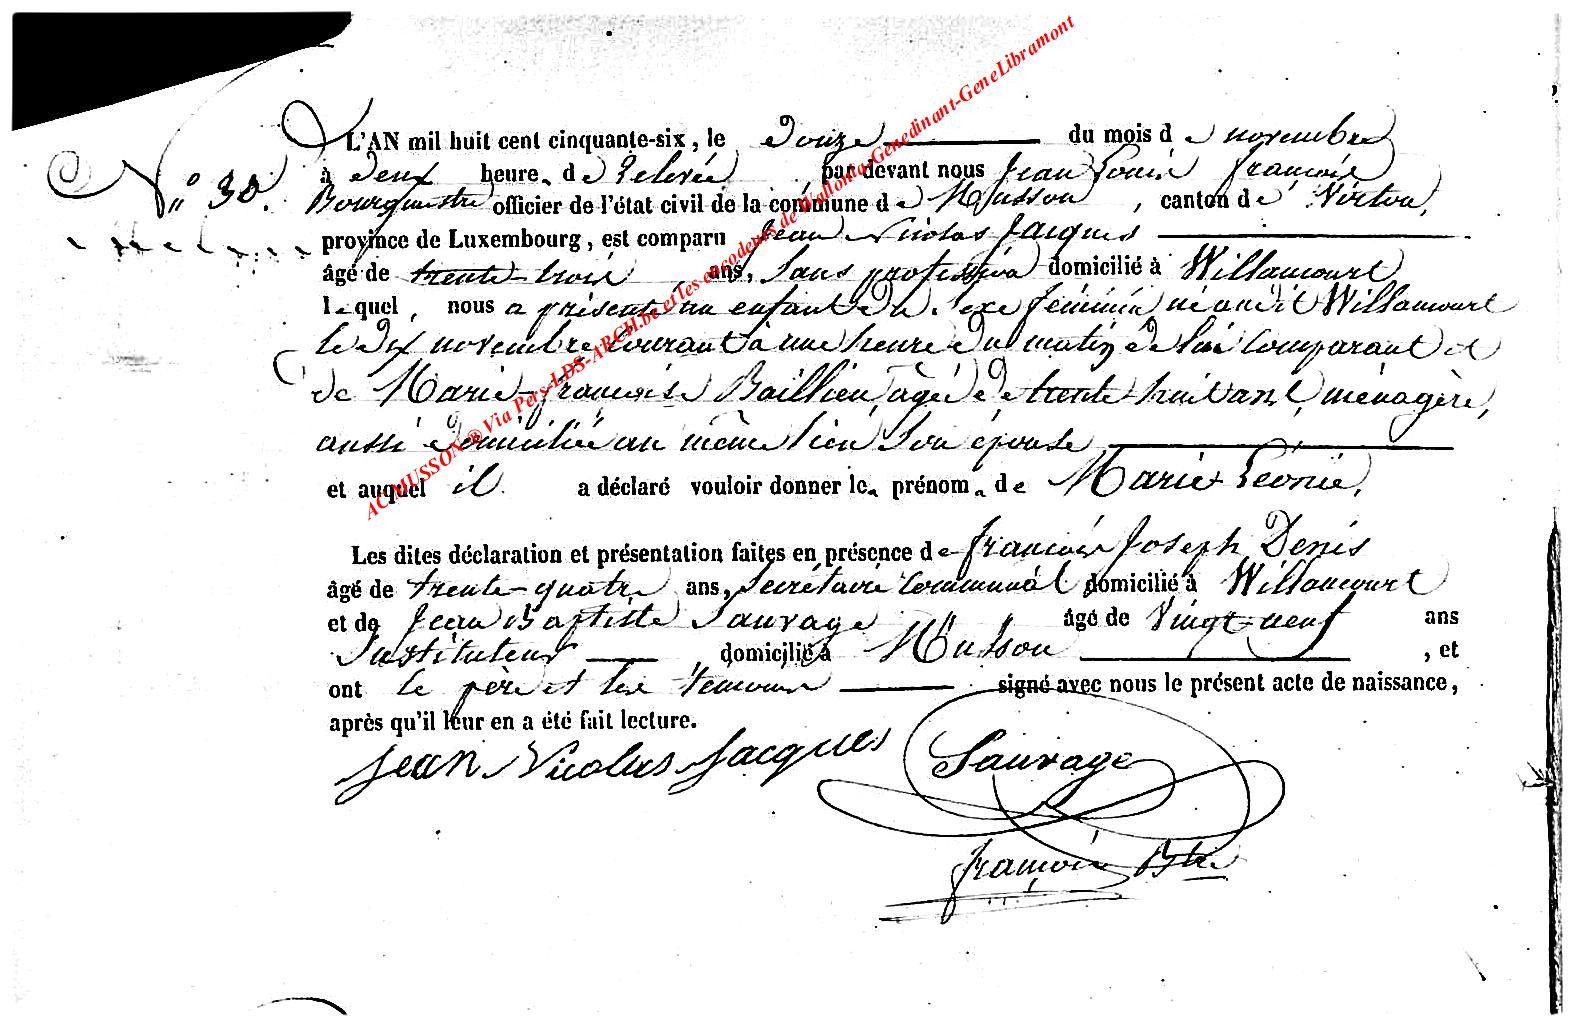 L'AN mil huit cent cinquante-six, le douze du mois de novembre
N° 30. à deux heure, de relevée par devant nous Jean Louis François
Bourgmestre officier de l'état civil de la commune de Musson, canton de Virton,
province de Luxembourg, est comparu Jean Nicolas Jacques
âgé de trente-trois ans, sans profession domicilié à Willancourt
lequel, nous a présenté un enfant du sexe féminin né audit Willancourt
le dix novembre courant à une heure du matin de lui comparant et
de Marie-françoise Baillieu, âgée de trente-huit ans, ménagère,
aussi domiciliée au même lieu son épouse
et auquel il a déclaré vouloir donner le, prénom, de Marie Léonie,
Les dites déclaration et présentation faites en présence de françois Joseph Denis
âgé de trente-quatre ans, Secrétaire Communal domicilié à Willancourt
et de Jean Baptiste Sauvage âgé de vingt-neuf ans
Instituteur domicilié à Musson , et
ont le père et les témoins signé avec nous le présent acte de naissance,
après qu'il leur en a été fait lecture.
Jean Nicolas Jacques Sauvage
françois Btre
ACMUSSON® Via Pers-LDS-ARCH.be et les encodeurs de Wallonia-Genedinant-GeneLibramont